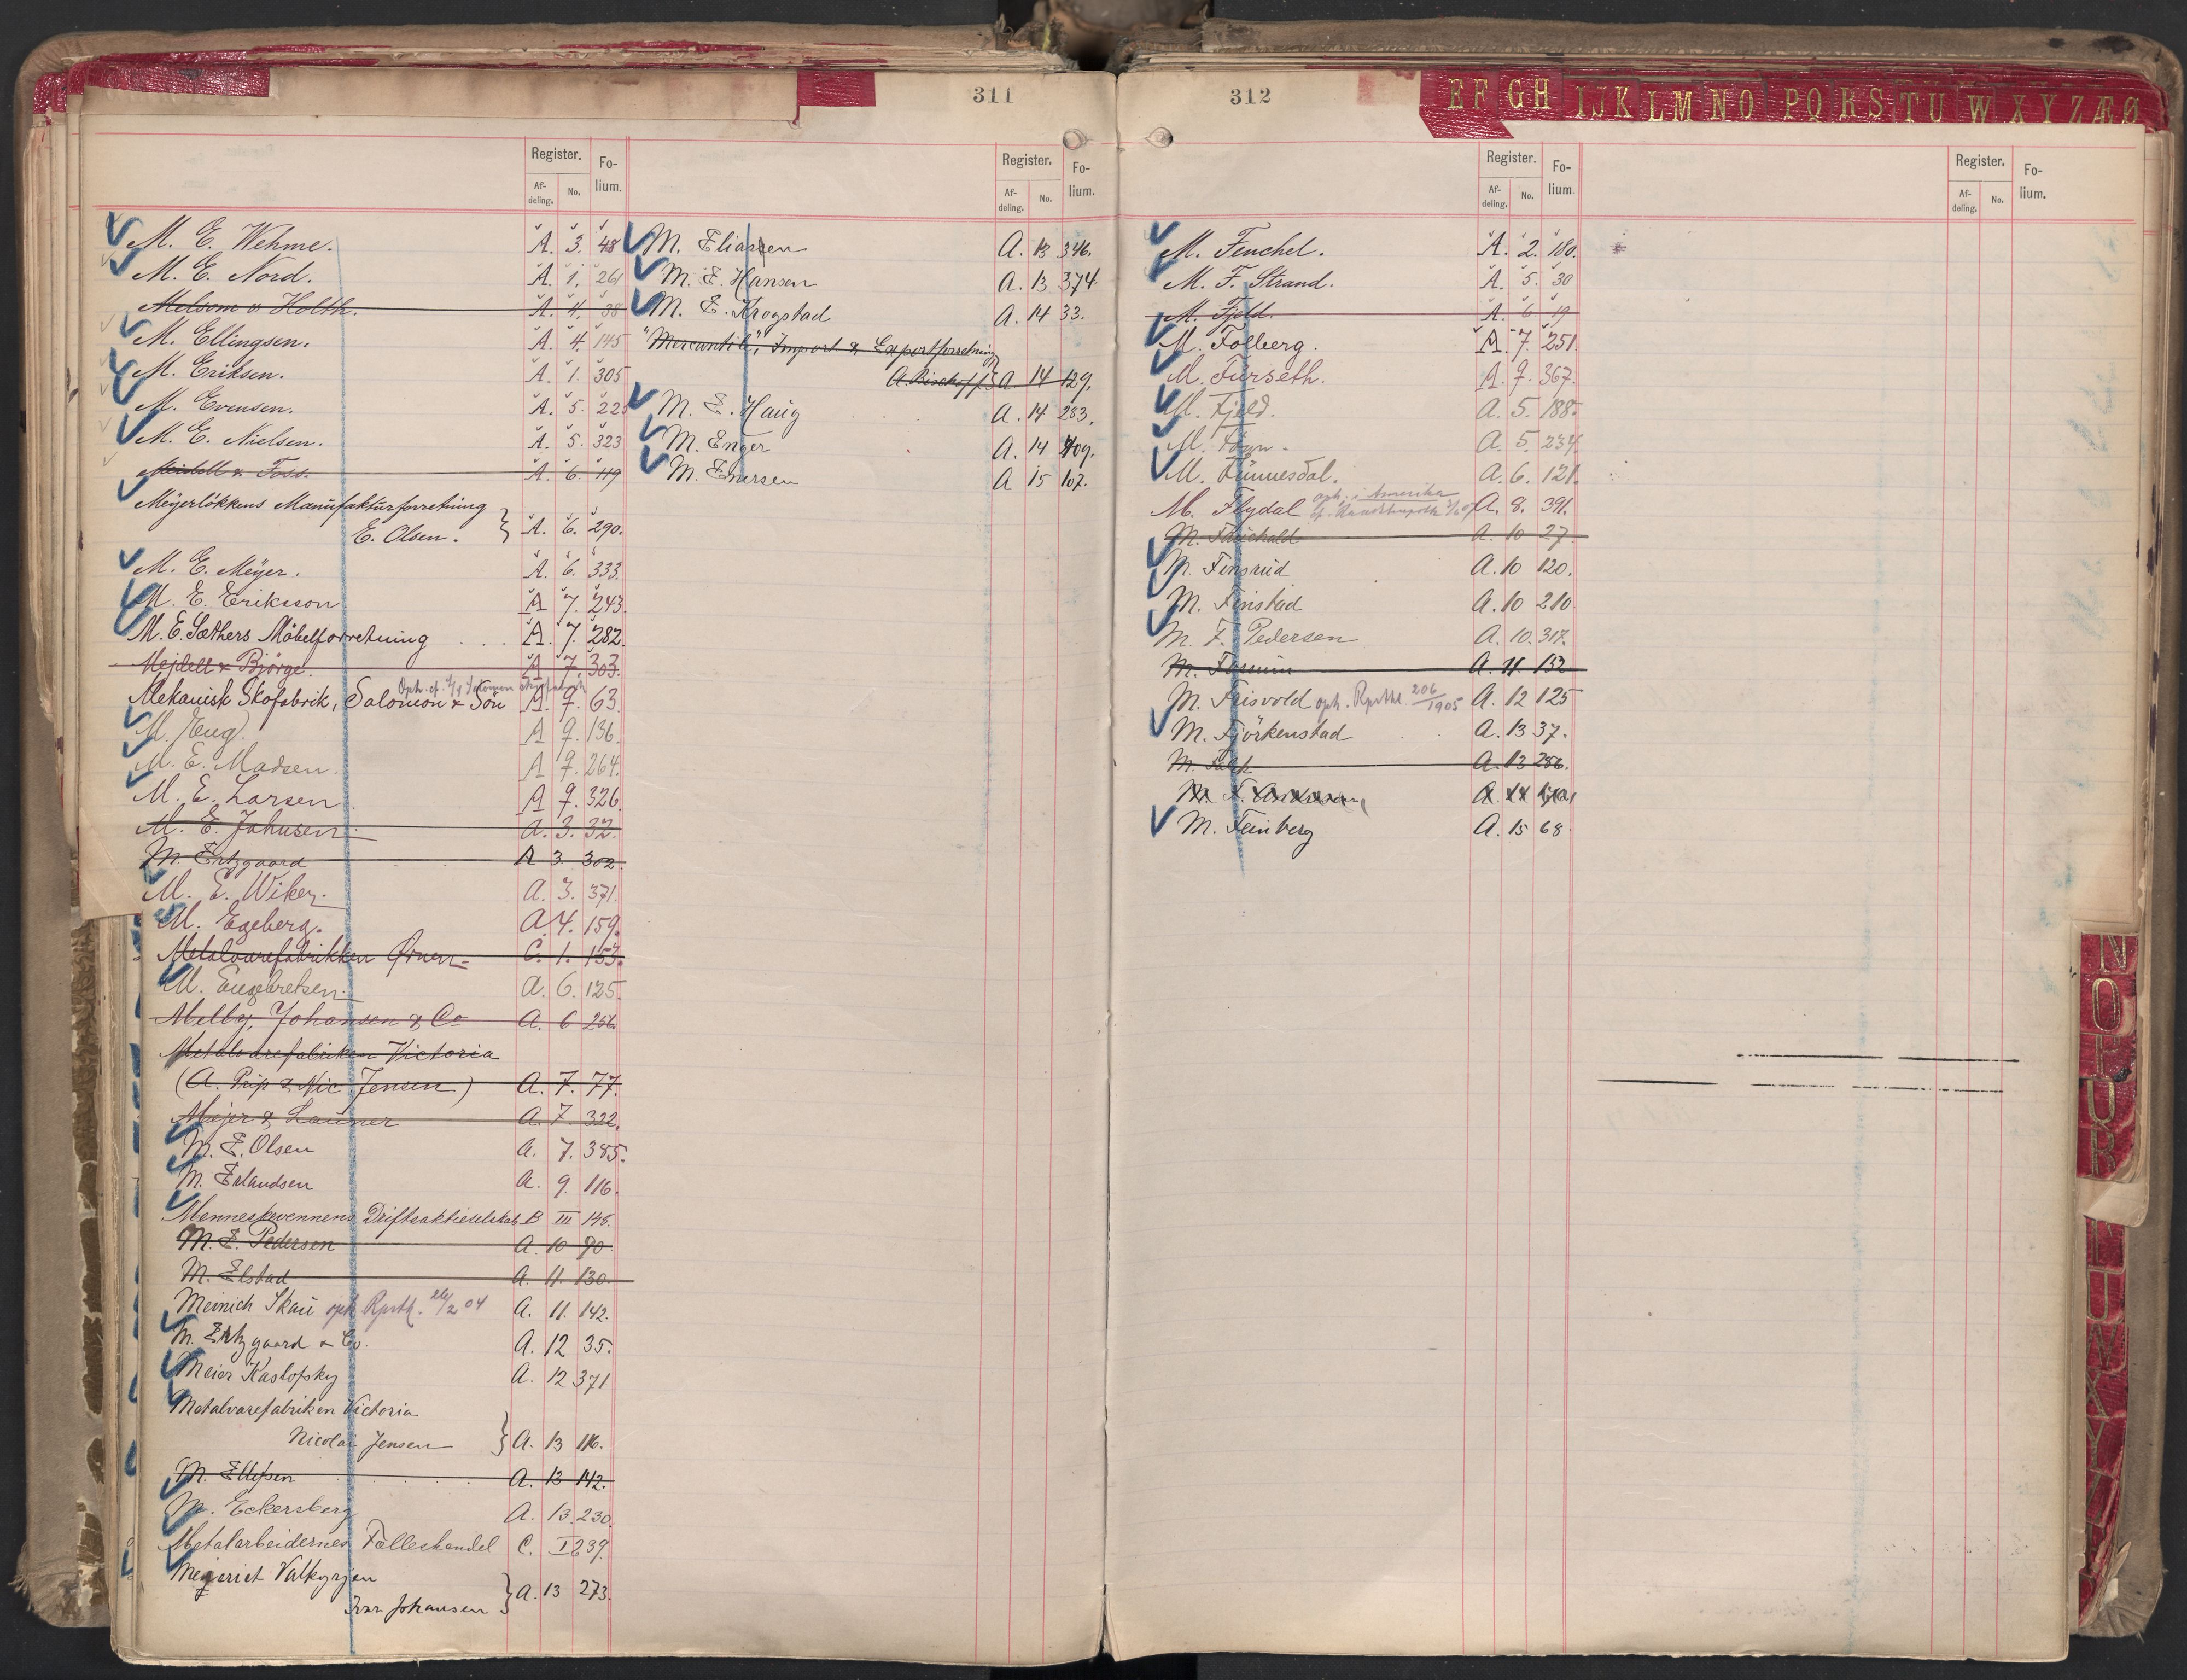 311
Register. Fo-
Af- No. lium.
deling.
M. E. Wehme. A. 3. 48
M. E. Nord. A. 1. 261
Melsom & Holth. A. 4. 38
M. Ellingsen. A. 4. 145
M. Eriksen. A. 1. 305
M. Evensen. A. 5. 225
M. E. Nielsen. A. 5. 323
Meidell & Foss. A. 6. 119
Meyerlökkens Manufakturforretning
E. Olsen. } A. 6. 290.
M. E. Meyer. A. 6. 333.
M. E. Eriksson A 7. 243.
M. E. Sæthers Möbelforretning A. 7. 282.
Mejdell & Björge. A 7. 303.
Mekanisk Skofabrik, Salomon & Sön A. 9. 63.
M. Eug. A 9. 136.
M. E. Madsen. A 9. 264.
M. E. Larsen. A 9. 326.
M. E. Johnsen. A. 3. 32.
M. Ertzgaard A 3. 302.
M. E. Wiker. A. 3. 371.
M. Egeberg. A. 4. 159.
Metalvarefabrikken Ørnen C. 1. 153.
M. Engebretsen. A. 6. 125.
Melby, Johansen & Co A. 6 256.
Metalvarefabriken Victoria
(A. Prip & Nic Jensen) A. 7. 77.
Mejer & Launer A. 7. 322.
M. E. Olsen A. 7. 385.
M. Erlandsen A. 9. 116.
Menneskevennens Driftsaktieselskab B III 145.
M. E. Pedersen A. 10 90
M. Elstad A. 11. 130.
Meinich Skau oph. Rprtk. 26/2 04 A. 11. 142.
M. Ertzgaard & Co. A. 12 35.
Meier Kaslofsky A. 12 371
Metalvarefabriken Victoria
Nicolai Jensen } A. 13 116.
M. Ellefsen A. 13 142.
M. Eckersberg A. 13. 230.
Metalarbeidernes Fælleshandel C. I 239.
Meijeriet Valkyrjen
Ivar Johansen } A. 13 273.
Register. Fo-
Af- No. lium.
deling.
M. Eliassen A. 13 346.
M. E. Hansen A. 13 374
M. E. Krogstad A. 14 33.
"Mercantile", Import & Exportforretning
A. Bischoff } A. 14 129.
M. E. Haug A. 14 283.
M. Enger A. 14 409.
M. Enersen A 15 107.
312
E F G H I J K L M N O P Q R S T U W X Y Z Æ Ø
Register. Fo-
Af- No. lium.
deling.
M. Fenchel. A. 2. 180.
M. F. Strand. A. 5. 30
M. Fjeld. A. 6 19
M. Folberg. A. 7. 251.
M. Furseth. A. 9. 367.
M. Fjeld. A. 5. 188.
M. A. 5. 234.
M. Finnesdal. A. 6. 121.
M. Flydal oph. i Amerika A. 8. 391.
M. A. 10 27
M. Finsrud A. 10 120.
M. Finstad A. 10 210.
M. F. Pedersen A. 10. 317.
M. Fossum A. 11 132
M. Frisvold oph. Rprtkl. 206/1905 A. 12 125
M. Fjörkenstad A. 13 37.
M. Falck A. 13 286.
M. F. Andersen A. 14
M. Feinberg A. 15 68.
Register. Fo-
Af- No. lium.
deling.